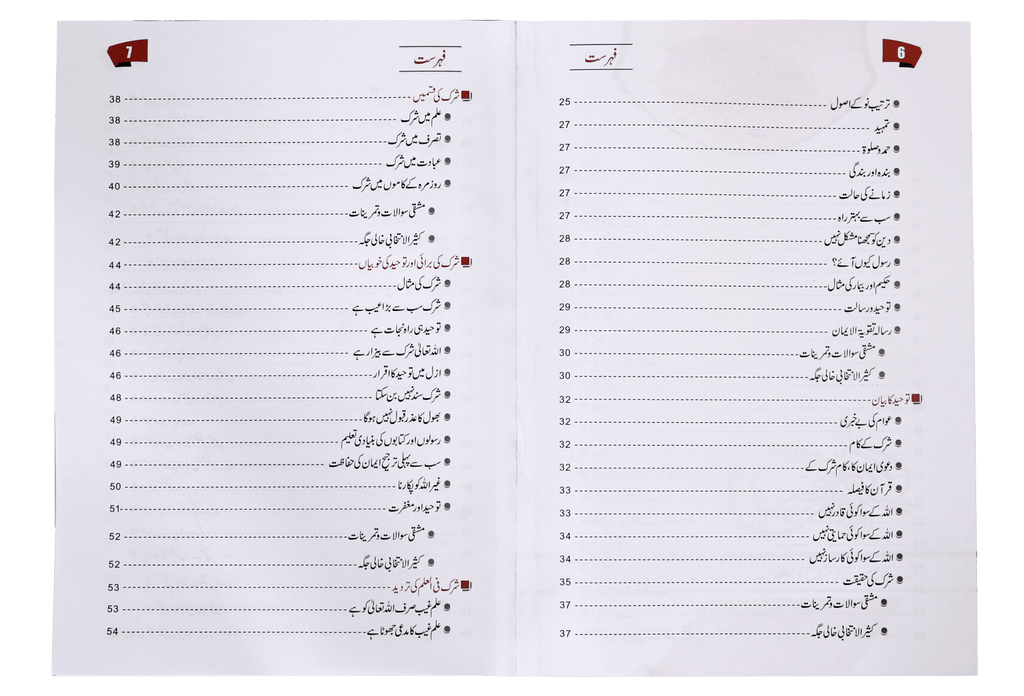 6
فہرست
ترتیب نو کے اصول 25
تمہید 27
حمد و صلوٰۃ 27
بندہ اور بندگی 27
زمانے کی حالت 27
سب سے بہتر راہ 27
دین کو سمجھنا مشکل نہیں 28
رسول کیوں آئے؟ 28
حکیم اور بیمار کی مثال 28
توحید و رسالت 29
رسالہ تقویۃ الایمان 29
مشقی سوالات و تمرینات 30
کثیر الانتخابی خالی جگہ 30
توحید کا بیان 32
عوام کی بے خبری 32
شرک کے کام 32
دعوی ایمان کا، کام شرک کے 32
قرآن کا فیصلہ 33
اللہ کے سوا کوئی قادر نہیں 33
اللہ کے سوا کوئی حمایتی نہیں 34
اللہ کے سوا کوئی کارساز نہیں 34
شرک کی حقیقت 35
مشقی سوالات و تمرینات 37
کثیر الانتخابی خالی جگہ 37
7
فہرست
شرک کی قسمیں 38
علم میں شرک 38
تصرف میں شرک 38
عبادت میں شرک 39
روزمرہ کے کاموں میں شرک 40
مشقی سوالات و تمرینات 42
کثیر الانتخابی خالی جگہ 42
شرک کی برائی اور توحید کی خوبیاں 44
شرک کی مثال 44
شرک سب سے بڑا عیب ہے 45
توحید ہی راہ نجات ہے 46
اللہ تعالیٰ شرک سے بیزار ہے 46
ازل میں توحید کا اقرار 46
شرک سند نہیں بن سکتا 48
بھول کا عذر قبول نہیں ہوگا 49
رسولوں اور کتابوں کی بنیادی تعلیم 49
سب سے پہلی ترجیح ایمان کی حفاظت 49
غیر اللہ کو پکارنا 50
توحید اور مغفرت 51
مشقی سوالات و تمرینات 52
کثیر الانتخابی خالی جگہ 52
شرک فی العلم کی تردید 53
علم غیب صرف اللہ تعالیٰ کو ہے 53
علم غیب کا مدعی جھوٹا ہے 54